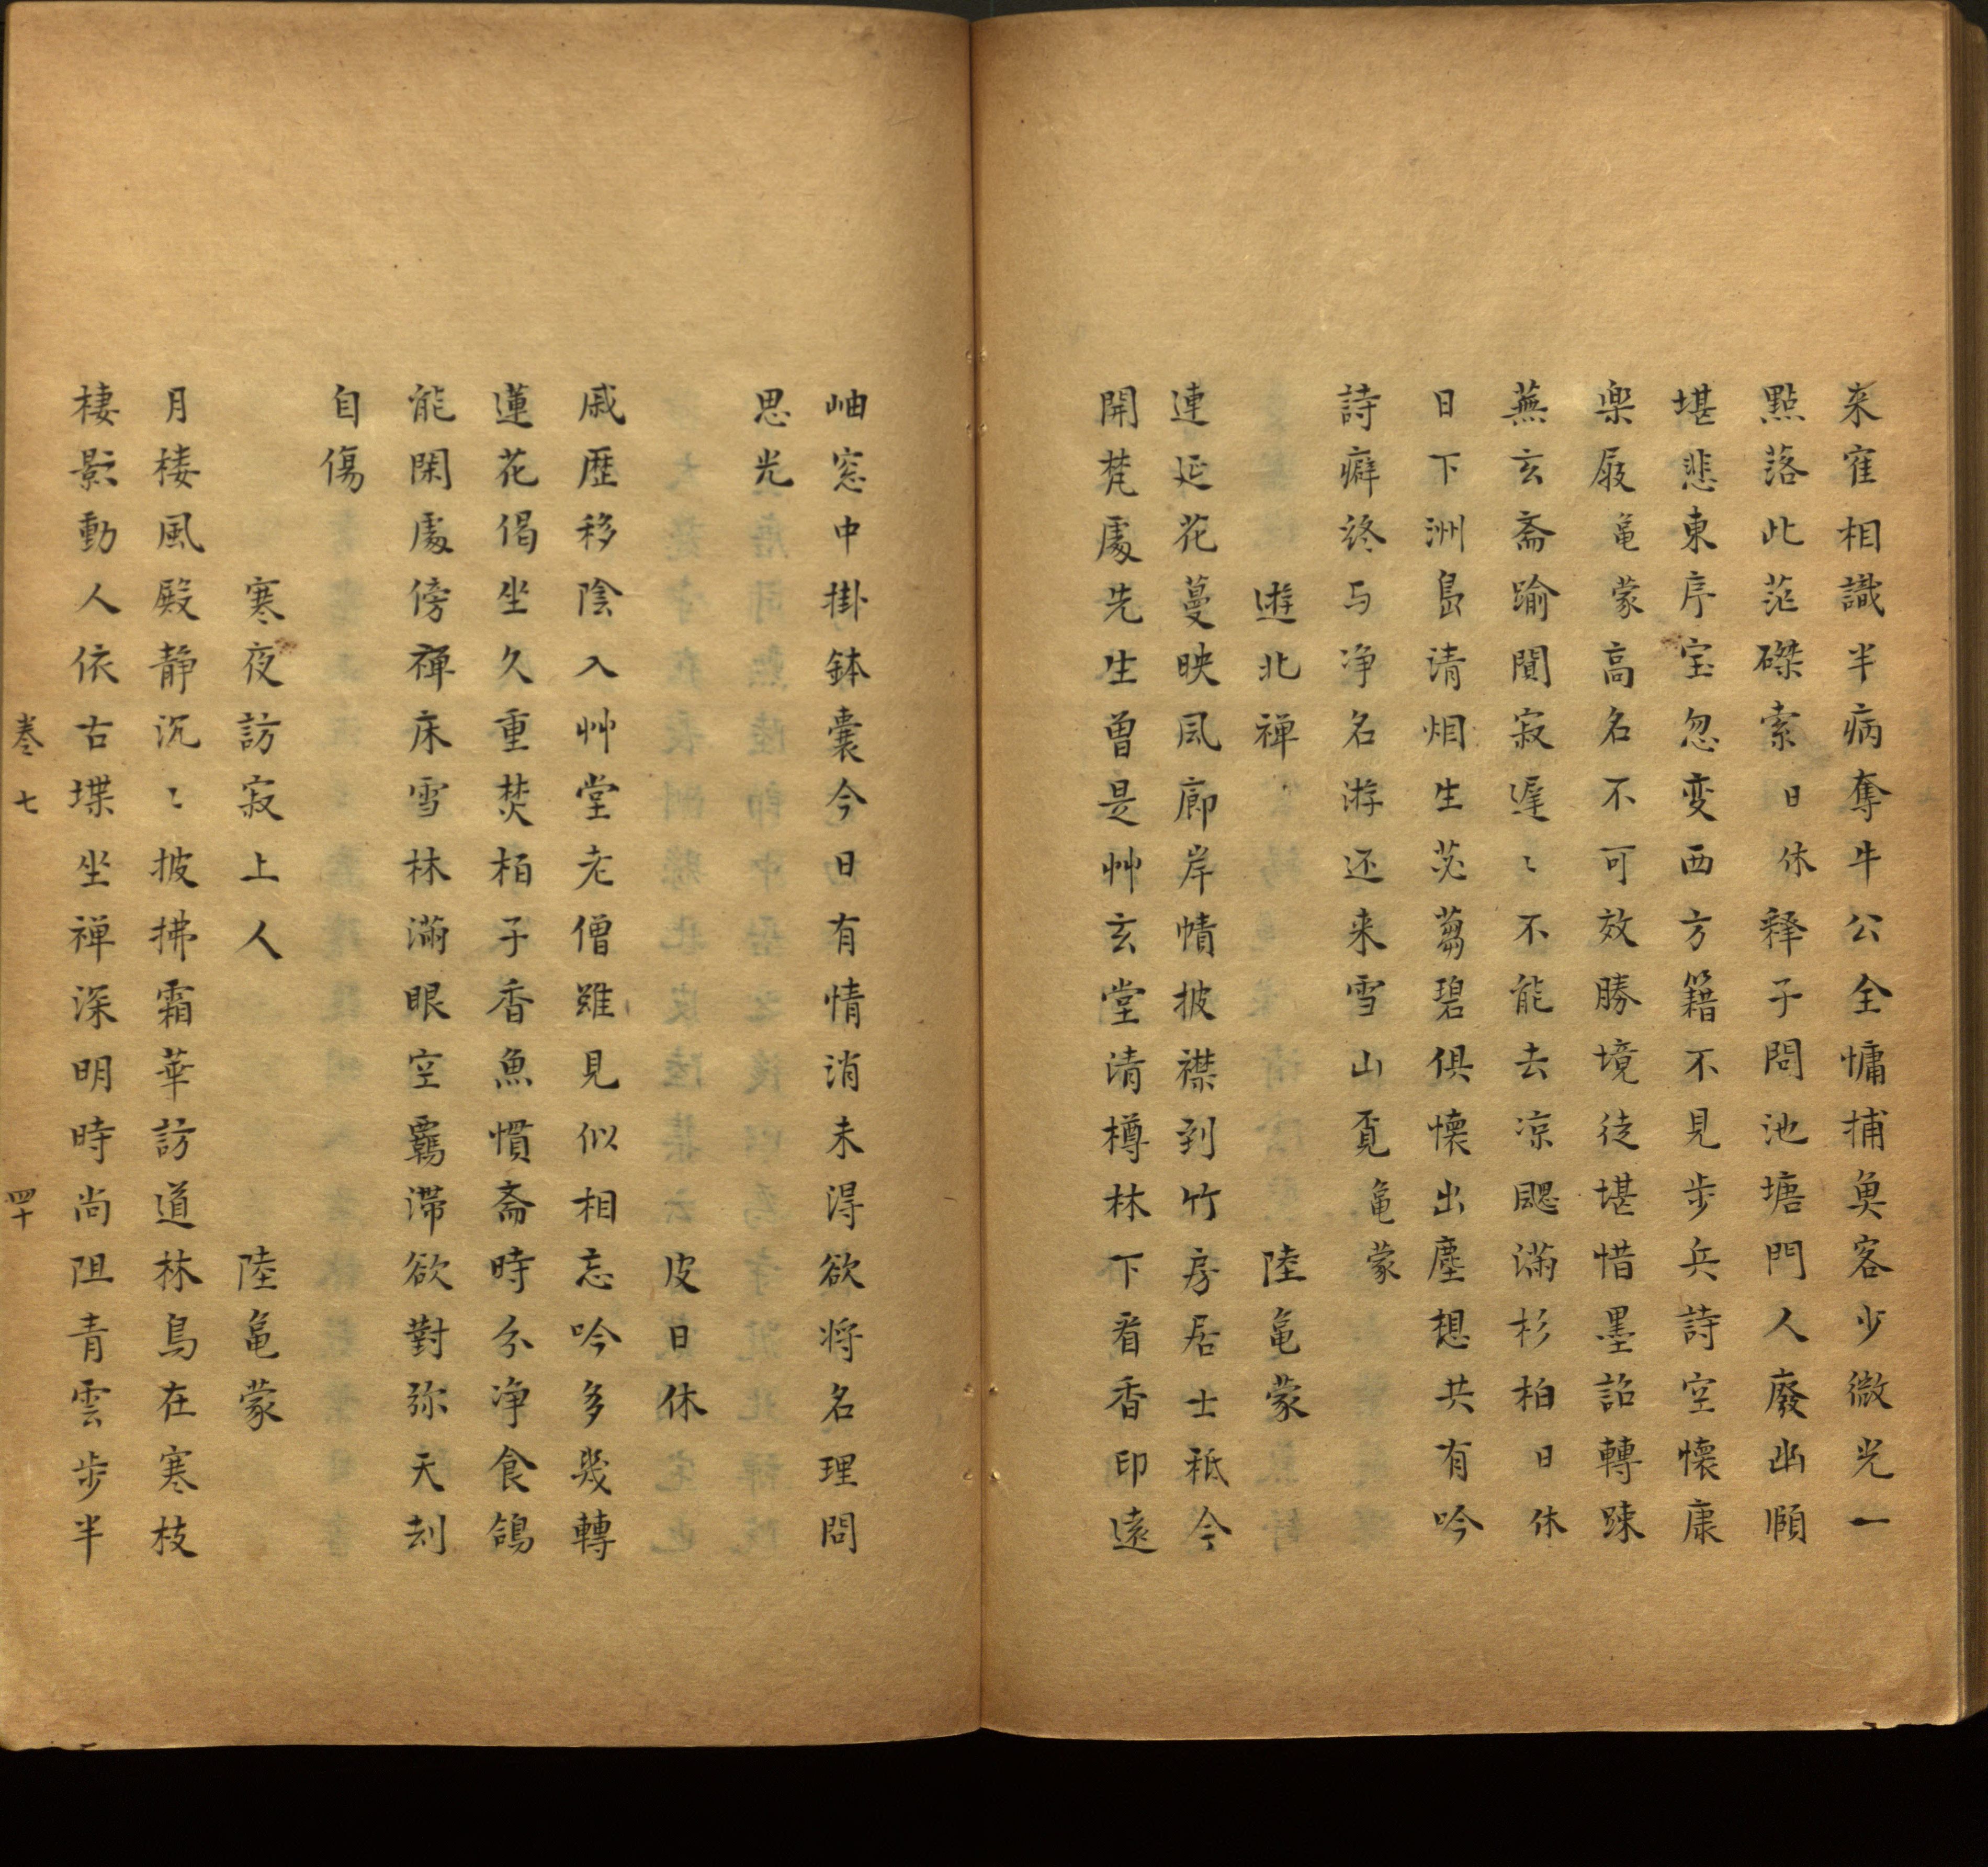 来隺相識半病奪牛公全慵捕魚客少微光一
點落此茫磔索日休釋子問池塘門人廢幽頋
堪悲東序宝忽变西方籍不見步兵詩空懷康
楽屐亀蒙高名不可效勝境徒堪惜墨詔轉踈
蕪玄斋踰閴寂遟〻不能去凉颸滿杉柏日休
日下洲島清烟生苾蒭碧俱懷出塵想共有吟
詩癖終与浄名游还来雪山覓亀蒙
遊北禅 陸亀蒙
連延花蔓映風廊岸幘披襟到竹房居士秪今
開梵處先生曾是艸玄堂清樽林下看香印遠
岫窓中掛鉢囊今日有情消未淂欲将名理問
思光
皮日休
戚歴移陰入艸堂老僧雖見似相忘吟多㡬轉
蓮花偈坐久重焚柏子香魚慣斋時分浄食鴿
能閑處傍禅床雪林滿眼空羈滯欲對弥天刦
自傷
寒夜訪寂上人 陸亀蒙
月楼風殿静沉〻披拂霜華訪道林鳥在寒枝
棲影動人依古堞坐禅深明時尚阻青雲步半
卷七 四十